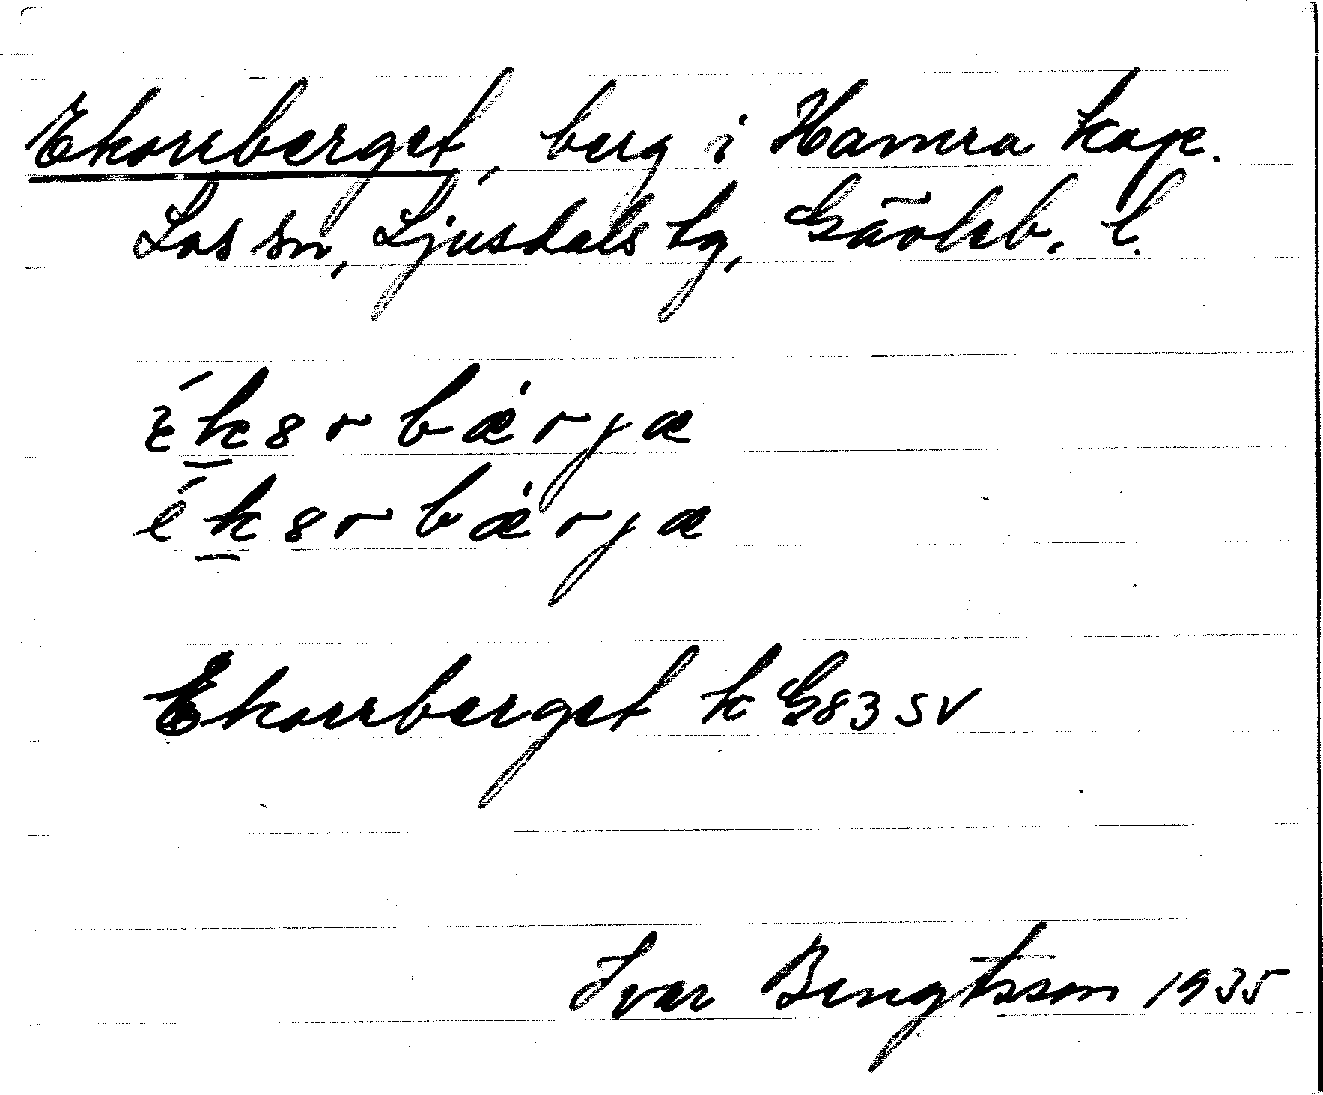 Ekorrberget, berg i Hamra kap.
Los sn, Ljusdals tg, Gävleb. l.
ék8rbærjæ
ék8rbærjæ
Ekorrberget k G83 SV
Ivar Bengtsson 1935